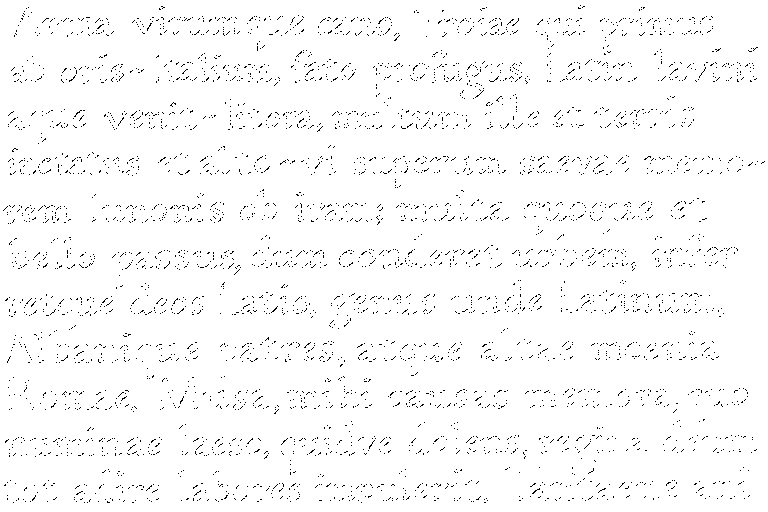 Arma virumque cano, Troiae qui primus
ab oris Italiam, fato profugus, Latin lavini
aque venit litora, multum ille et terris
iactatus et alto vi superum saevae memo-
rem Iunonis ob iram; multa quoque et
bello passus, dum conderet urbem, infer
retque deos Latio, genus unde Latinum,
Albanique patres, atque altae moenia
Romae. Musa, mihi causas memora, quo
numinae laeso, quidve dolens, regina deum
tot adire labores impulerit.